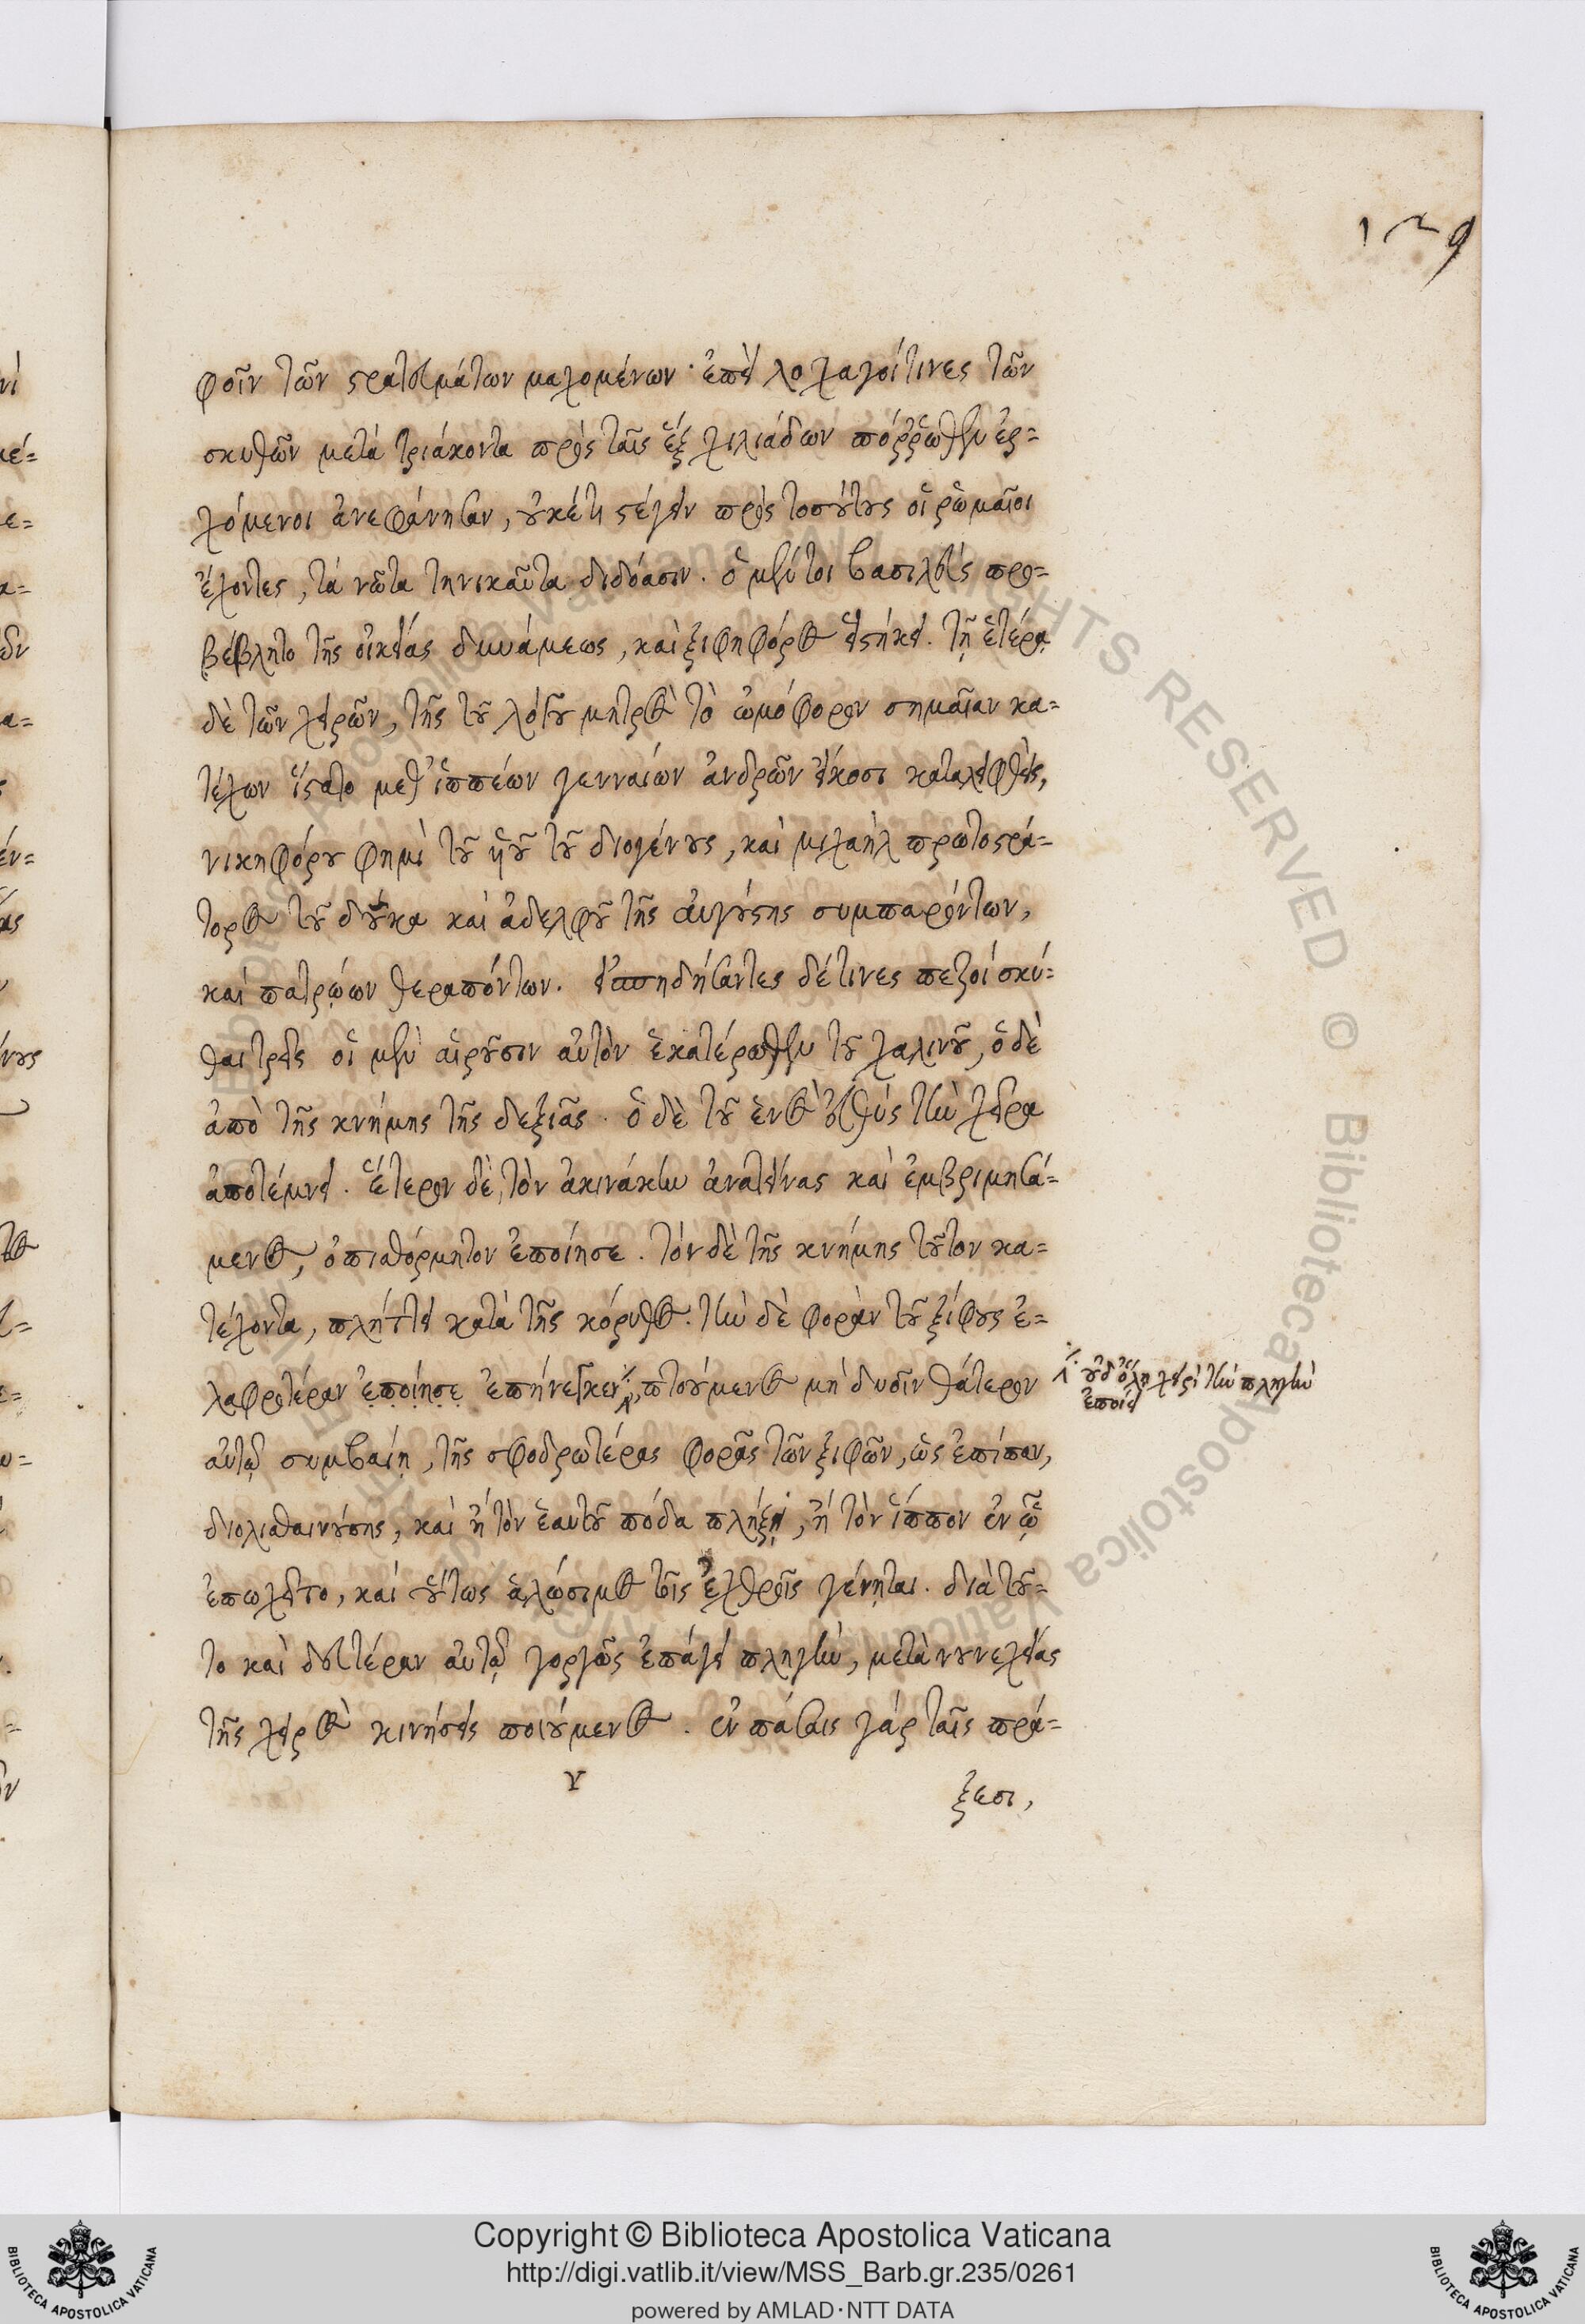 129
φοῖν τῶν στρατευμάτων μαχομένων· ἐπεὶ λοχαγοί τινες τῶν
σκυθῶν μετὰ τριάκοντα πρὸς ταῖς ἓξ χιλιάδων πόῤῥωθεν ἐρ=
χόμενοι ἀνεφάνησαν, οὐκέτι στέγειν πρὸς τοσούτους οἱ ῥωμαῖοι
ἔχοντες, τὰ νῶτα τηνικαῦτα διδόασιν. ὁ μέντοι βασιλεὺς προ=
βέβλητο τῆς οἰκείας δυνάμεως, καὶ ξιφηφόρος εἱστήκει. τῇ ἑτέρᾳ
δὲ τῶν χειρῶν, τῆς τοῦ λόγου μητρὸς τὸ ὠμόφορον σημαίαν κα=
τέχων ἵστατο μεθ' ἱππέων γενναίων ἀνδρῶν εἴκοσι καταλειφθεὶς,
νικηφόρου φημὶ τοῦ ὑοῦ τοῦ διογένους, καὶ μιχαὴλ πρωτοστρά=
τορος τοῦ δούκα καὶ ἀδελφοῦ τῆς αὐγούστης συμπαρόντων,
καὶ πατρῴων θεραπόντων. εἰσπηδήσαντες δέ τινες πεζοὶ σκύ=
θαι τρεῖς οἱ μὲν αἱροῦσιν αὐτὸν ἑκατέρωθεν τοῦ χαλινοῦ, ὁ δὲ
ἀπὸ τῆς κνήμης τῆς δεξιᾶς. ὁ δὲ τοῦ ἑνὸς εὐθὺς τὴν χεῖρα
ἀποτέμνει. ἕτερον δὲ, τὸν ἀκινάκην ἀνατείνας καὶ ἐμβριμησά=
μενος, ὀπισθόρμητον ἐποίησε. τὸν δὲ τῆς κνήμης τοῦτον κα=
τέχοντα, πλήττει κατὰ τῆς κόρυθος. τὴν δὲ φορὰν τοῦ ξίφους ἐ=
λαφροτέραν ἐποίησε ἐπήνεγκεν, πτοούμενος μὴ δυοῖν θάτερον
οὐδ' ὅλῃ χειρὶ τὴν πληγὴν
ἐποίει
αὐτῷ συμβαίη, τῆς σφοδρωτέρας φορᾶς τῶν ξιφῶν, ὡς ἐπίπαν,
διολισθαινούσης, καὶ ἢ τὸν ἑαυτοῦ πόδα πλήξῃ, ἢ τὸν ἵππον ἐν ᾧ
ἐπωχεῖτο, καὶ οὕτως ἁλώσιμος τοῖς ἐχθροῖς γένηται. διὰ τοῦ=
το καὶ δευτέραν αὐτῷ γοργῶς ἐπάγει πληγὴν, μετὰ νουνεχείας
τῆς χειρὸς κινήσεις ποιούμενος. ἐν πάσαις γὰρ ταῖς πρά=
ξεσι,
Copyright © Biblioteca Apostolica Vaticana
http://digi.vatlib.it/view/MSS_Barb.gr.235/0261
powered by AMLAD·NTT DATA
BIBLIOTECA APOSTOLICA VATICANA
BIBLIOTECA APOSTOLICA VATICANA